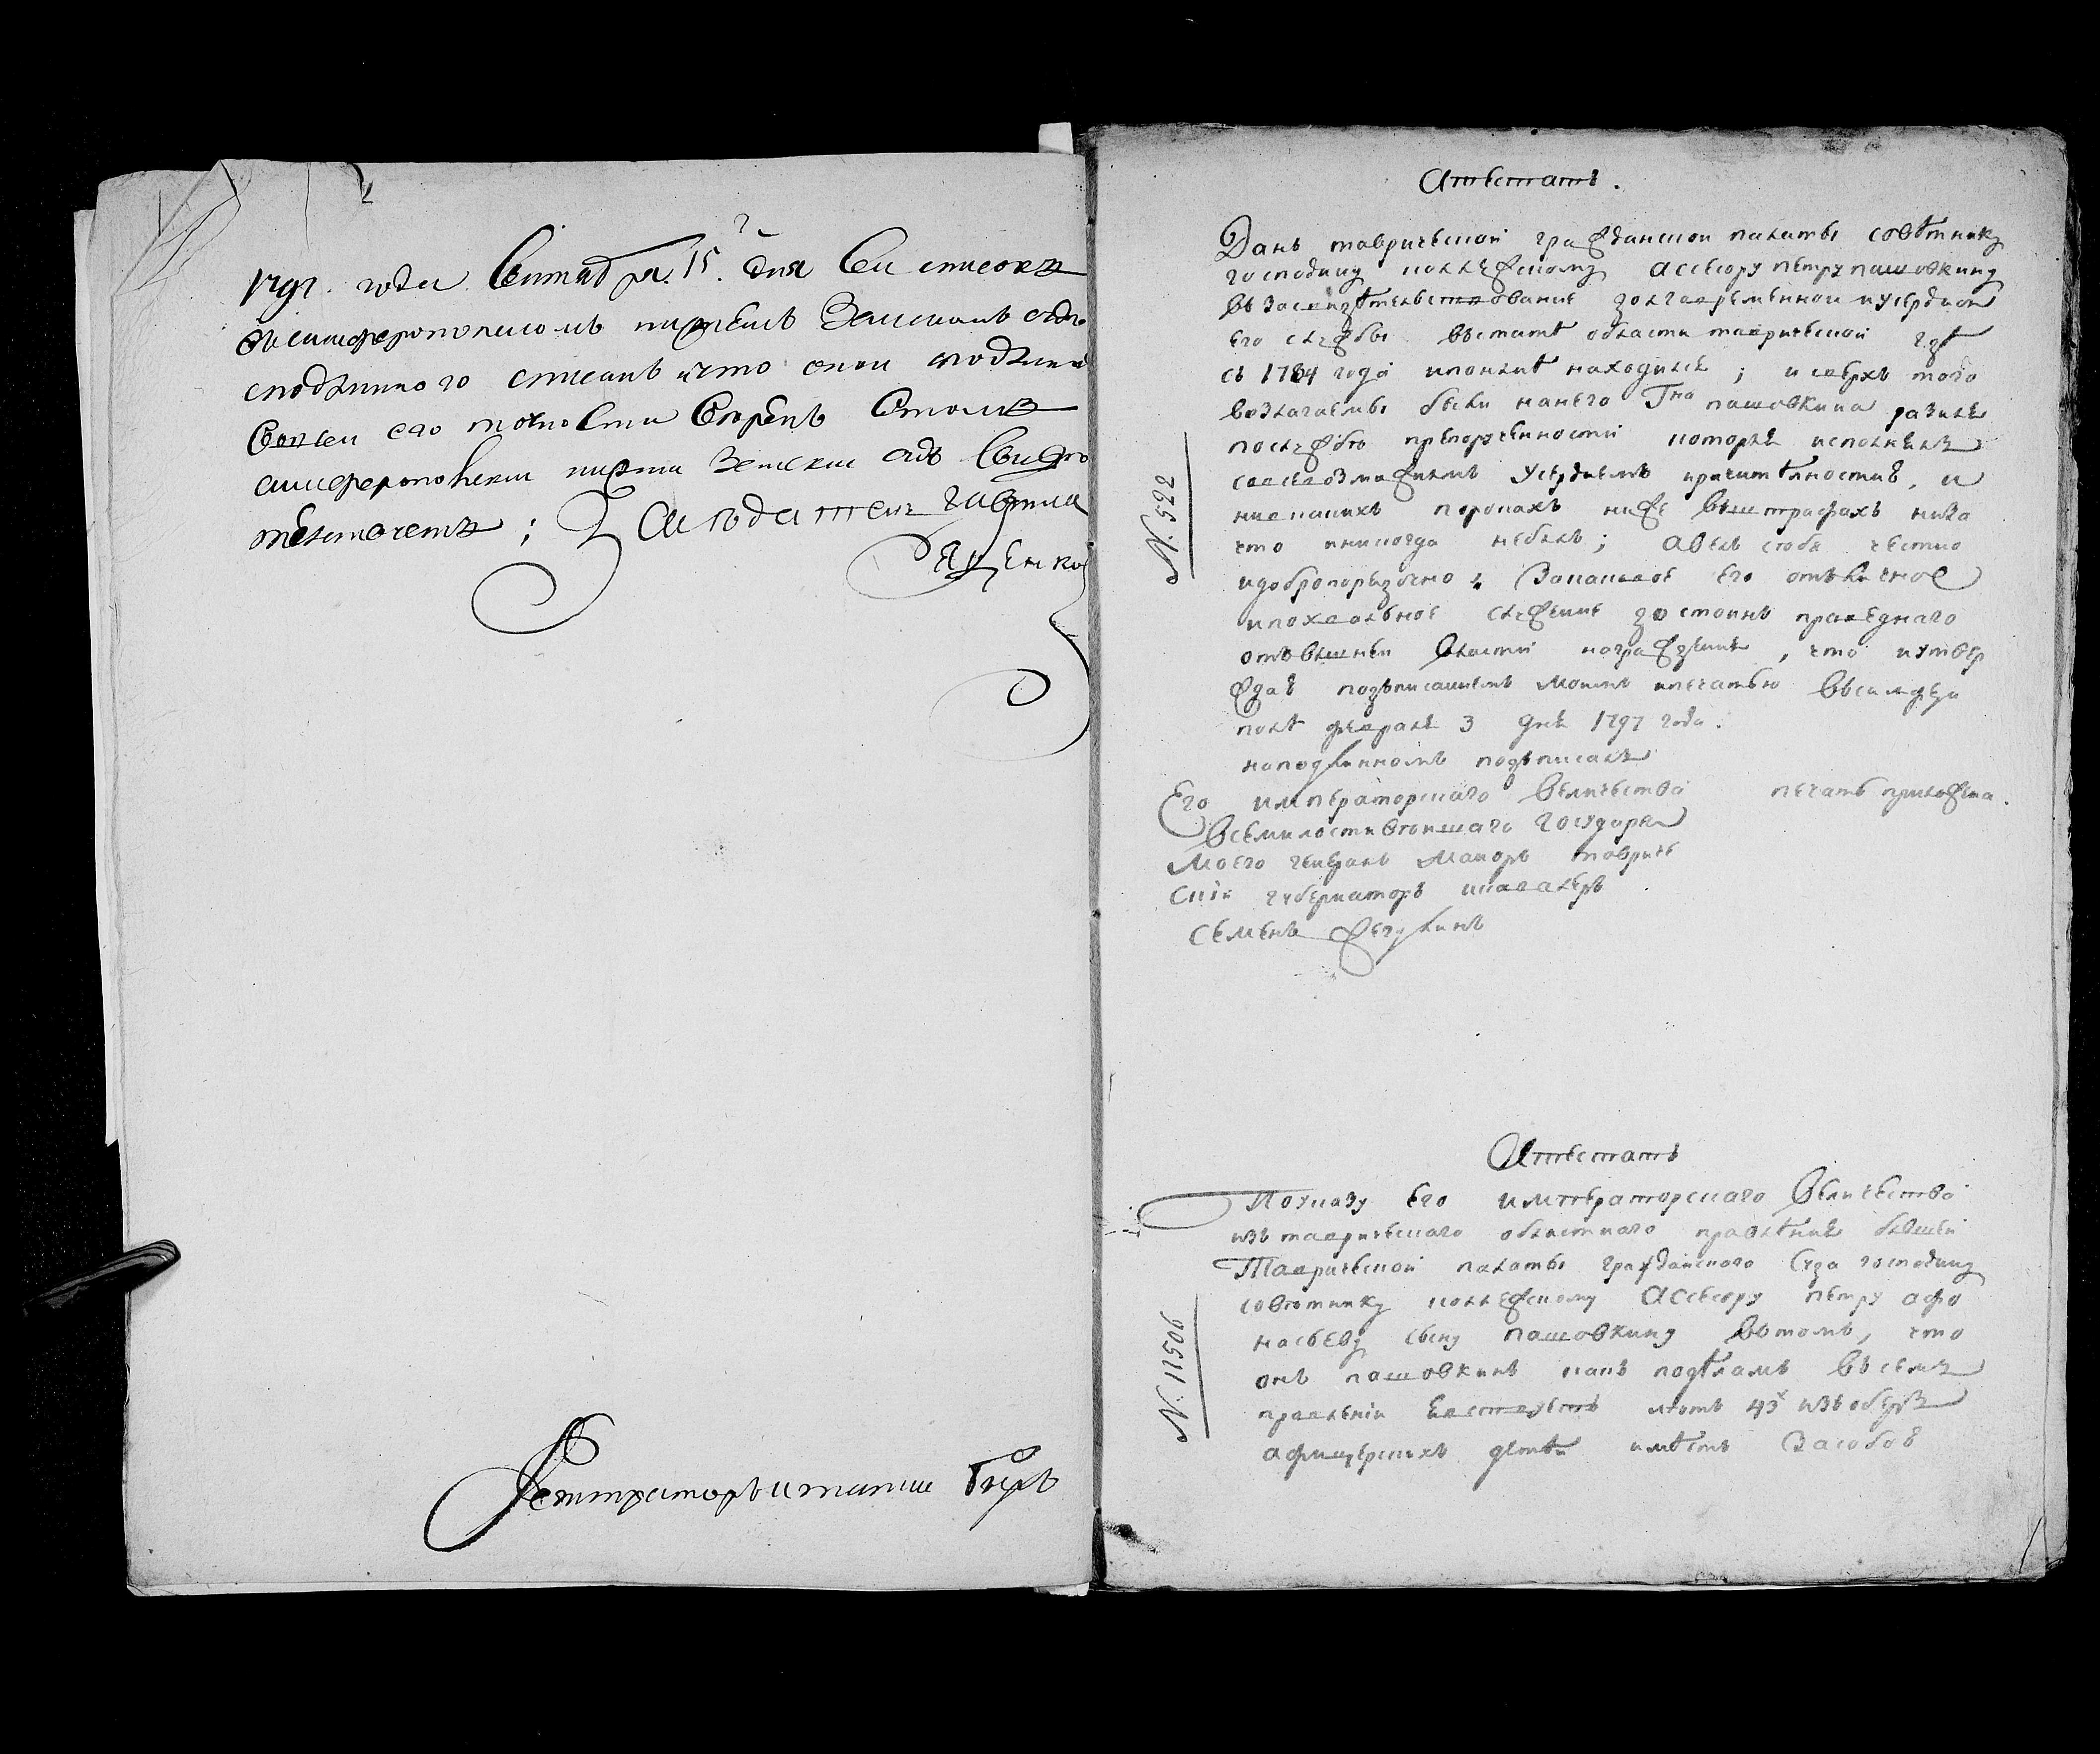 1797. года Сентября. 15.го дня Сей списокъ
въ симферополскомъ нижнемъ Земскомъ судѣ
съ подлинного списанъ и что онои
во всеи его точности веренъ
симферополскии нижни Земскии судъ Свидѣ
телствуетъ; Заседатель Гаврила
Яценков
Регистраторъ
Атестатъ.
Данъ таврическои гражданскои палаты совѣтнику
господину коллежскому Ассесору петру пашовкину
въ засвидѣтельствование долговременнои и усерднои
его службы въ статѣ области таврическои гдѣ
съ 1784 года и понынѣ находился; и сверхъ того
возлагаемы были на него Гна пашовкина разныя
по службѣ препорученности которые исполнялъ
со всевозможнымъ Усердиемъ и рачителностию, и
ни в какихъ порокахъ ниже въ штрафахъ ни за
что никогда небылъ; а велъ себя честно
и добропорядочно; За каковое его отъличное
и похвальное служение достоинъ праведнаго
отъ вышнеи власти награждения, что и утвер
ждаю подъписаниемъ моимъ и печатью въ симфера
полѣ февраля 3 дня 1797 года.
на подлинномъ подъписалъ
Его императорскаго Величества печать приложена.
Всемилостивѣишаго Государя
Моего генералъ Маиоръ тавриче
скіи губернаторъ и кавалеръ
Семенъ Жегулинъ
N. 522
Атестатъ
По указу Его императорскаго Величества
изъ таврическаго областнаго правления бывшеи
Таврическои палаты гражданского Суда господину
совѣтнику коллежскому Ассесору петру афо
насьеву сыну пашовкину въ томъ, что
онъ пашовкинъ какъ по дѣламъ въ семъ
правлении явствуетъ лѣтъ 43х изъ оберъ
афицерскихъ детеи имѣетъ за собою
N. 11506